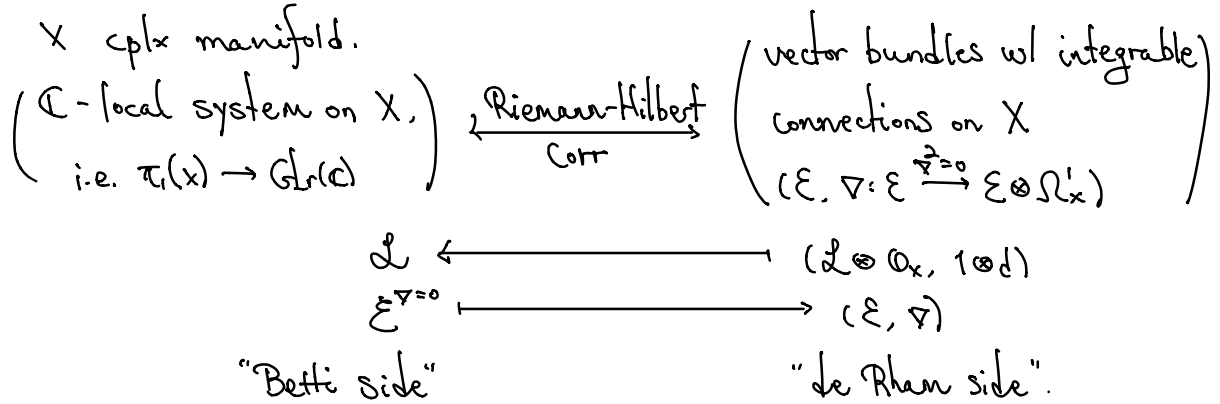 X cplx manifold.
( ℂ-local system on X, i.e. π₁(X) → GLr(ℂ) )
Riemann-Hilbert
Corr
( vector bundles w/ integrable connections on X
(ℰ, ∇: ℰ →^{∇²=0} ℰ⊗Ω¹_X) )
ℒ ⟵| (ℒ⊗O_X, 1⊗d)
ℰ^{∇=0} |⟶ (ℰ, ∇)
"Betti side" "de Rham side".